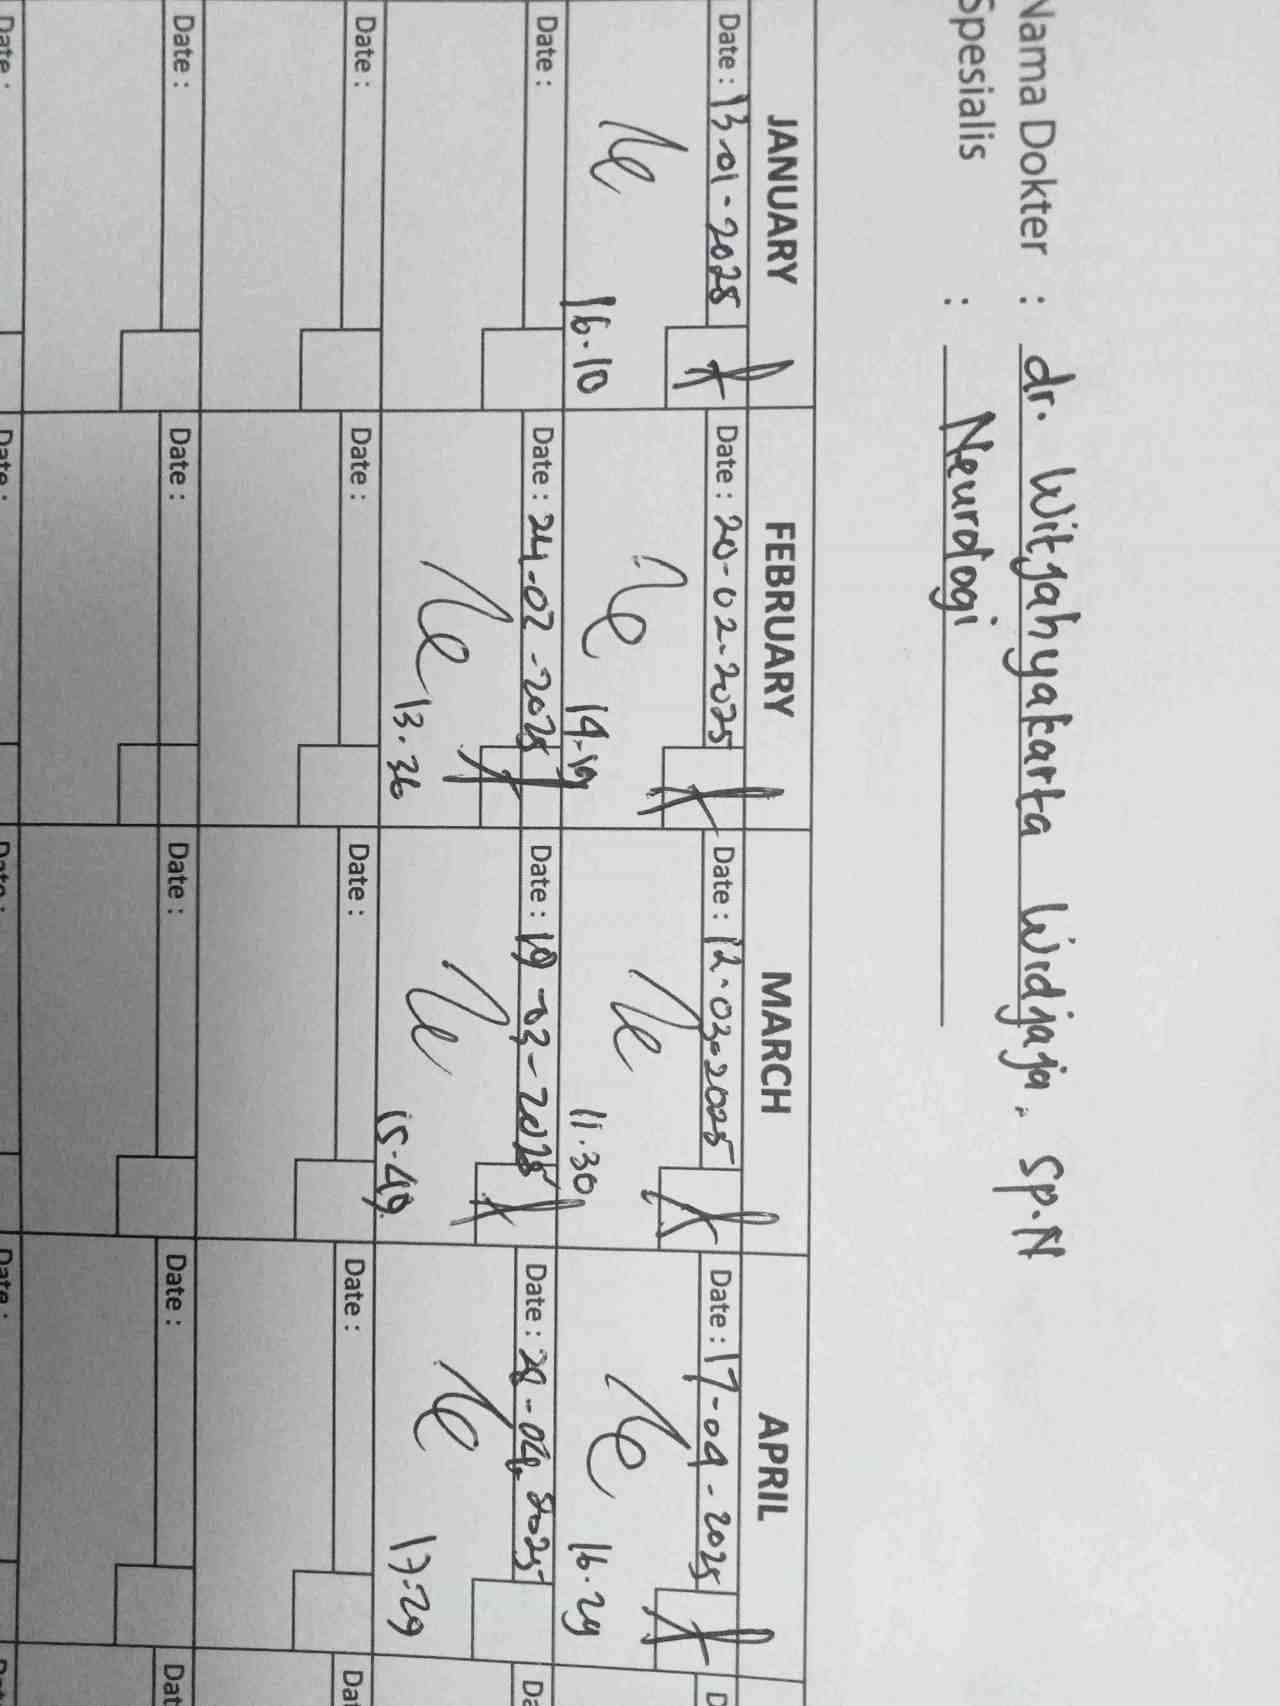 Nama Dokter : dr. Witjahyakarta Widjaja. Sp.N
Spesialis : Neurologi
JANUARY FEBRUARY MARCH APRIL
Date : 13-01-2025 Date : 20-02-2025 Date : 12-03-2025 Date : 17-04-2025
16.10 14.19 11.30 16.29
Date : Date : 24-02-2025 Date : 19-03-2025 Date : 28-04-2025
13.36 15.49 17.29
Date : Date : Date : Date : Dat
Date : Date : Date : Date : Dat
Date : Date : Date : Date :